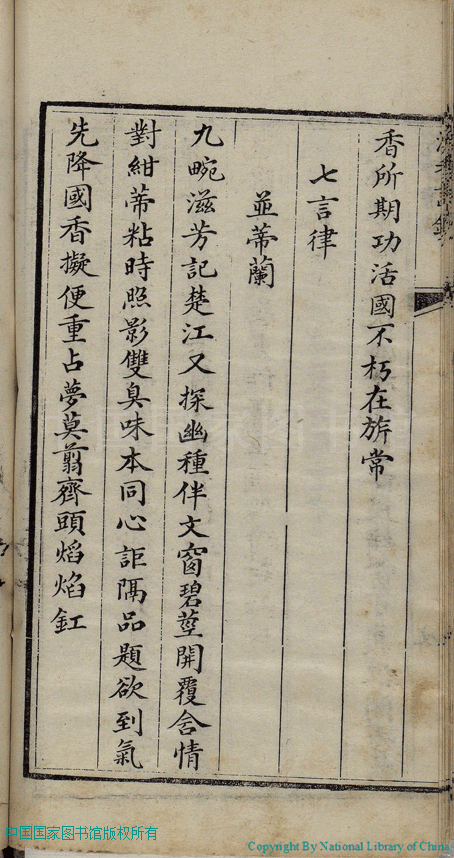 香所期功活國不朽在旂常
七言律
並蒂蘭
九畹滋芳記楚江又探幽種伴文窗碧莖開覆含情
對紺蒂粘時照影雙臭味本同心詎隔品題欲到氣
先降國香擬便重占夢莫翦齊頭焰焰釭
中国国家图书馆版权所有
Copyright By National Library of China